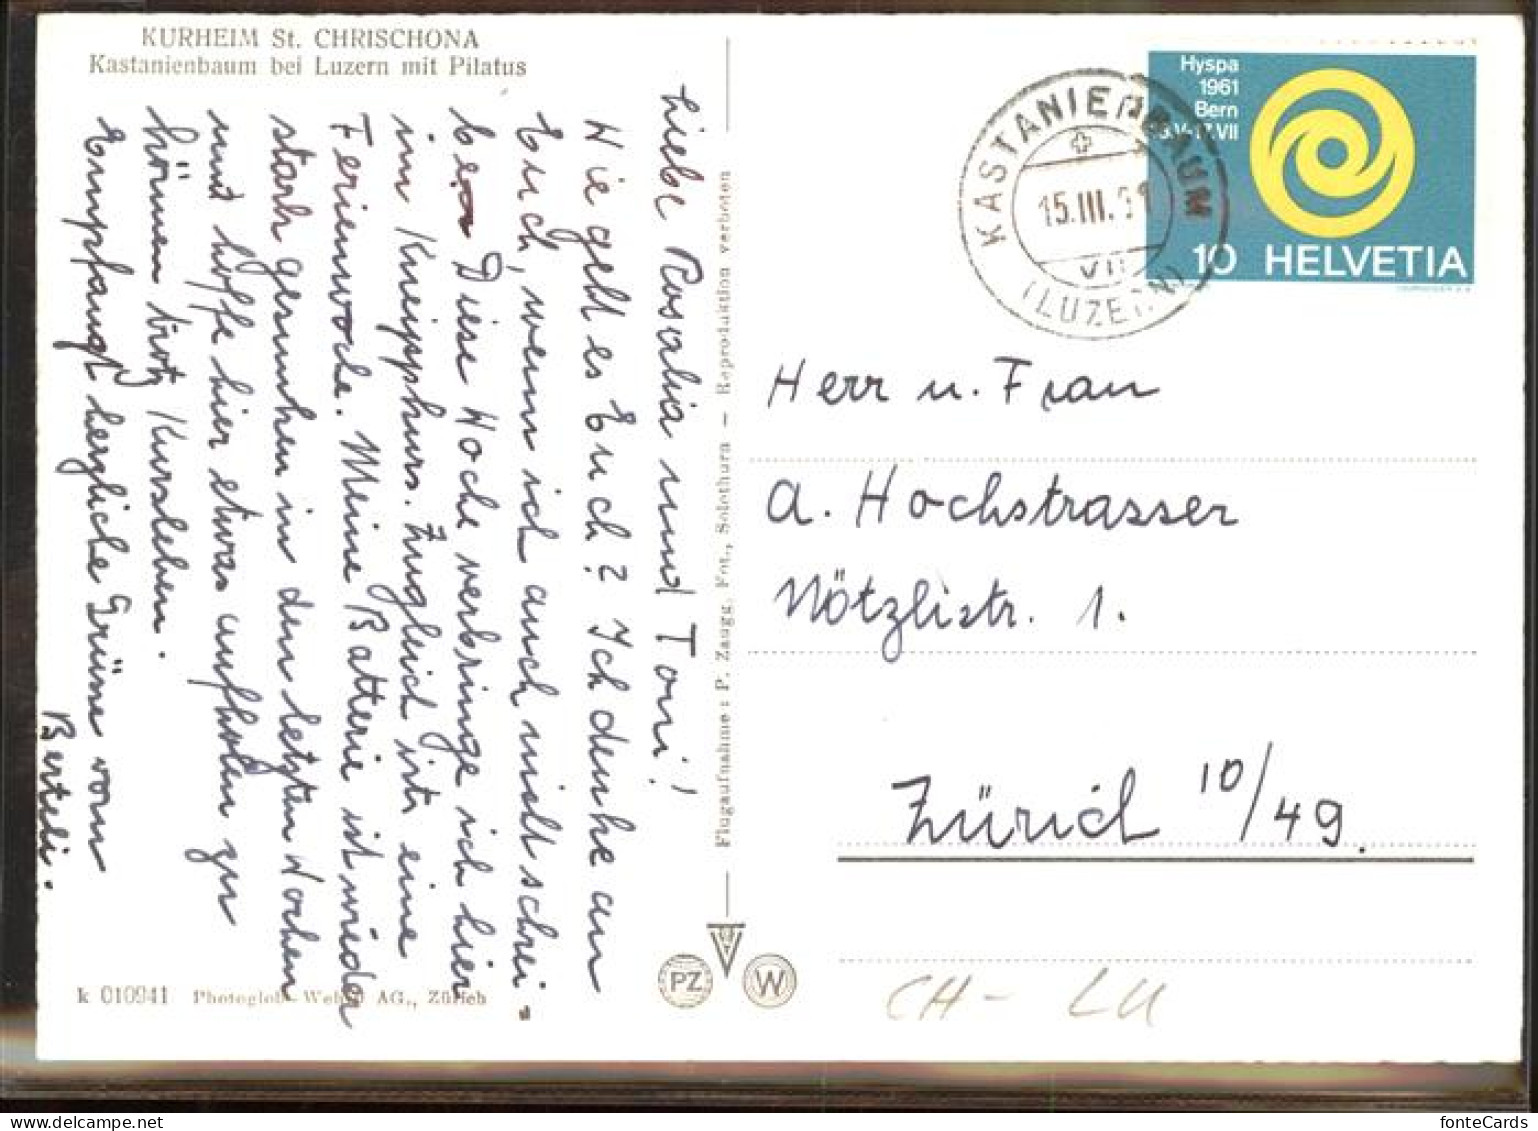 KURHEIM St. CHRISCHONA
Kastanienbaum bei Luzern mit Pilatus
Liebe Rosalia und Toni!
Wie geht es Euch? Ich denke an
Euch, wenn ich auch nicht schrei-
ben. Diese Woche verbringe ich hier
im Kneippkurs. Zugleich ist eine
Ferienwoche. Meine Batterie ist wieder
stark gesunken in den letzten Wochen
und hoffe hier etwas aufholen zu
können trotz Kursleben.
Empfangt herzliche Grüsse vom
Berteli.
Flugaufnahme: P. Zaugg, Fot., Solothurn — Reproduktion verboten
k 010941 Photoglob-Wehrli AG., Zürich
PZ
W
Hyspa
1961
Bern
17.VII
10 HELVETIA
KASTANIENBAUM
15.III.61
VII
(LUZERN)
Herr u. Frau
A. Hochstrasser
Nötzlistr. 1.
Zürich 10/49.
CH - LU
fonteCards